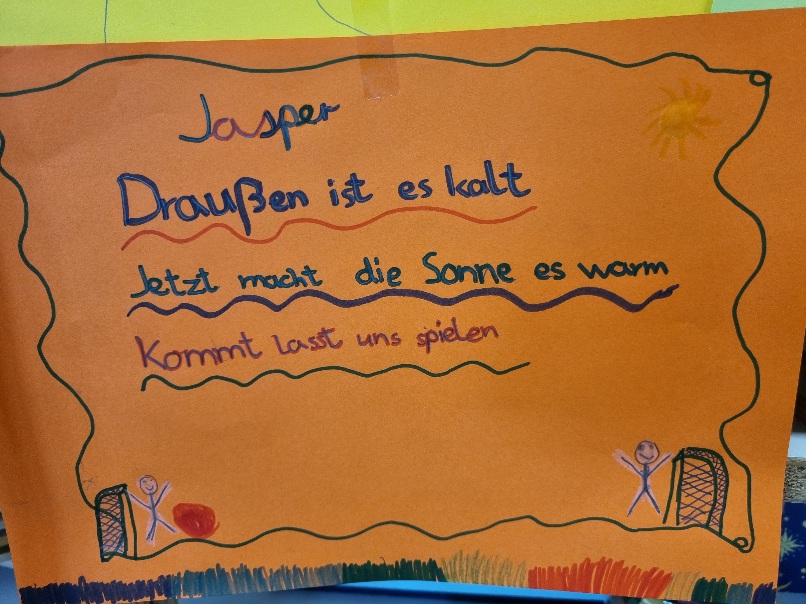 Jasper
Draußen ist es kalt
Jetzt macht die Sonne es warm
Kommt lasst uns spielen